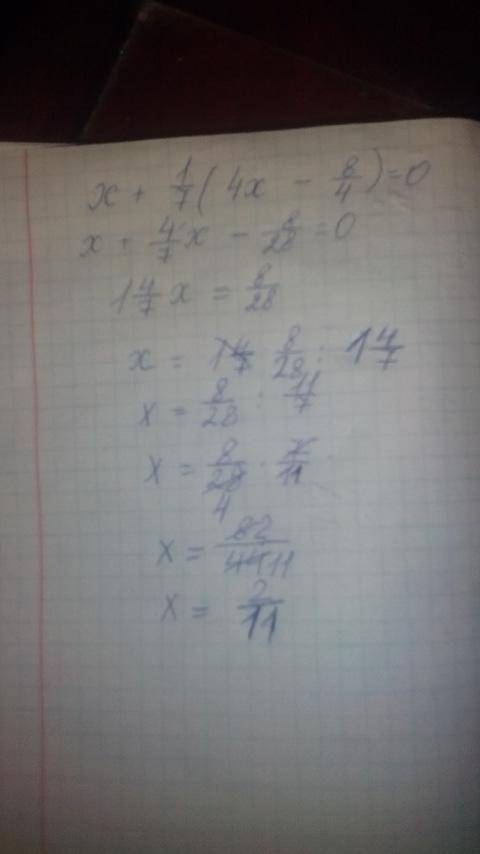 x + 1/7 ( 4x - 8/4 ) = 0
x + 4/7 x - 8/28 = 0
1 4/7 x = 8/28
x = 8/28 : 1 4/7
x = 8/28 : 11/7
x = 8/28 · 7/11
4
x = 8 2 / 44 11
x = 2/11